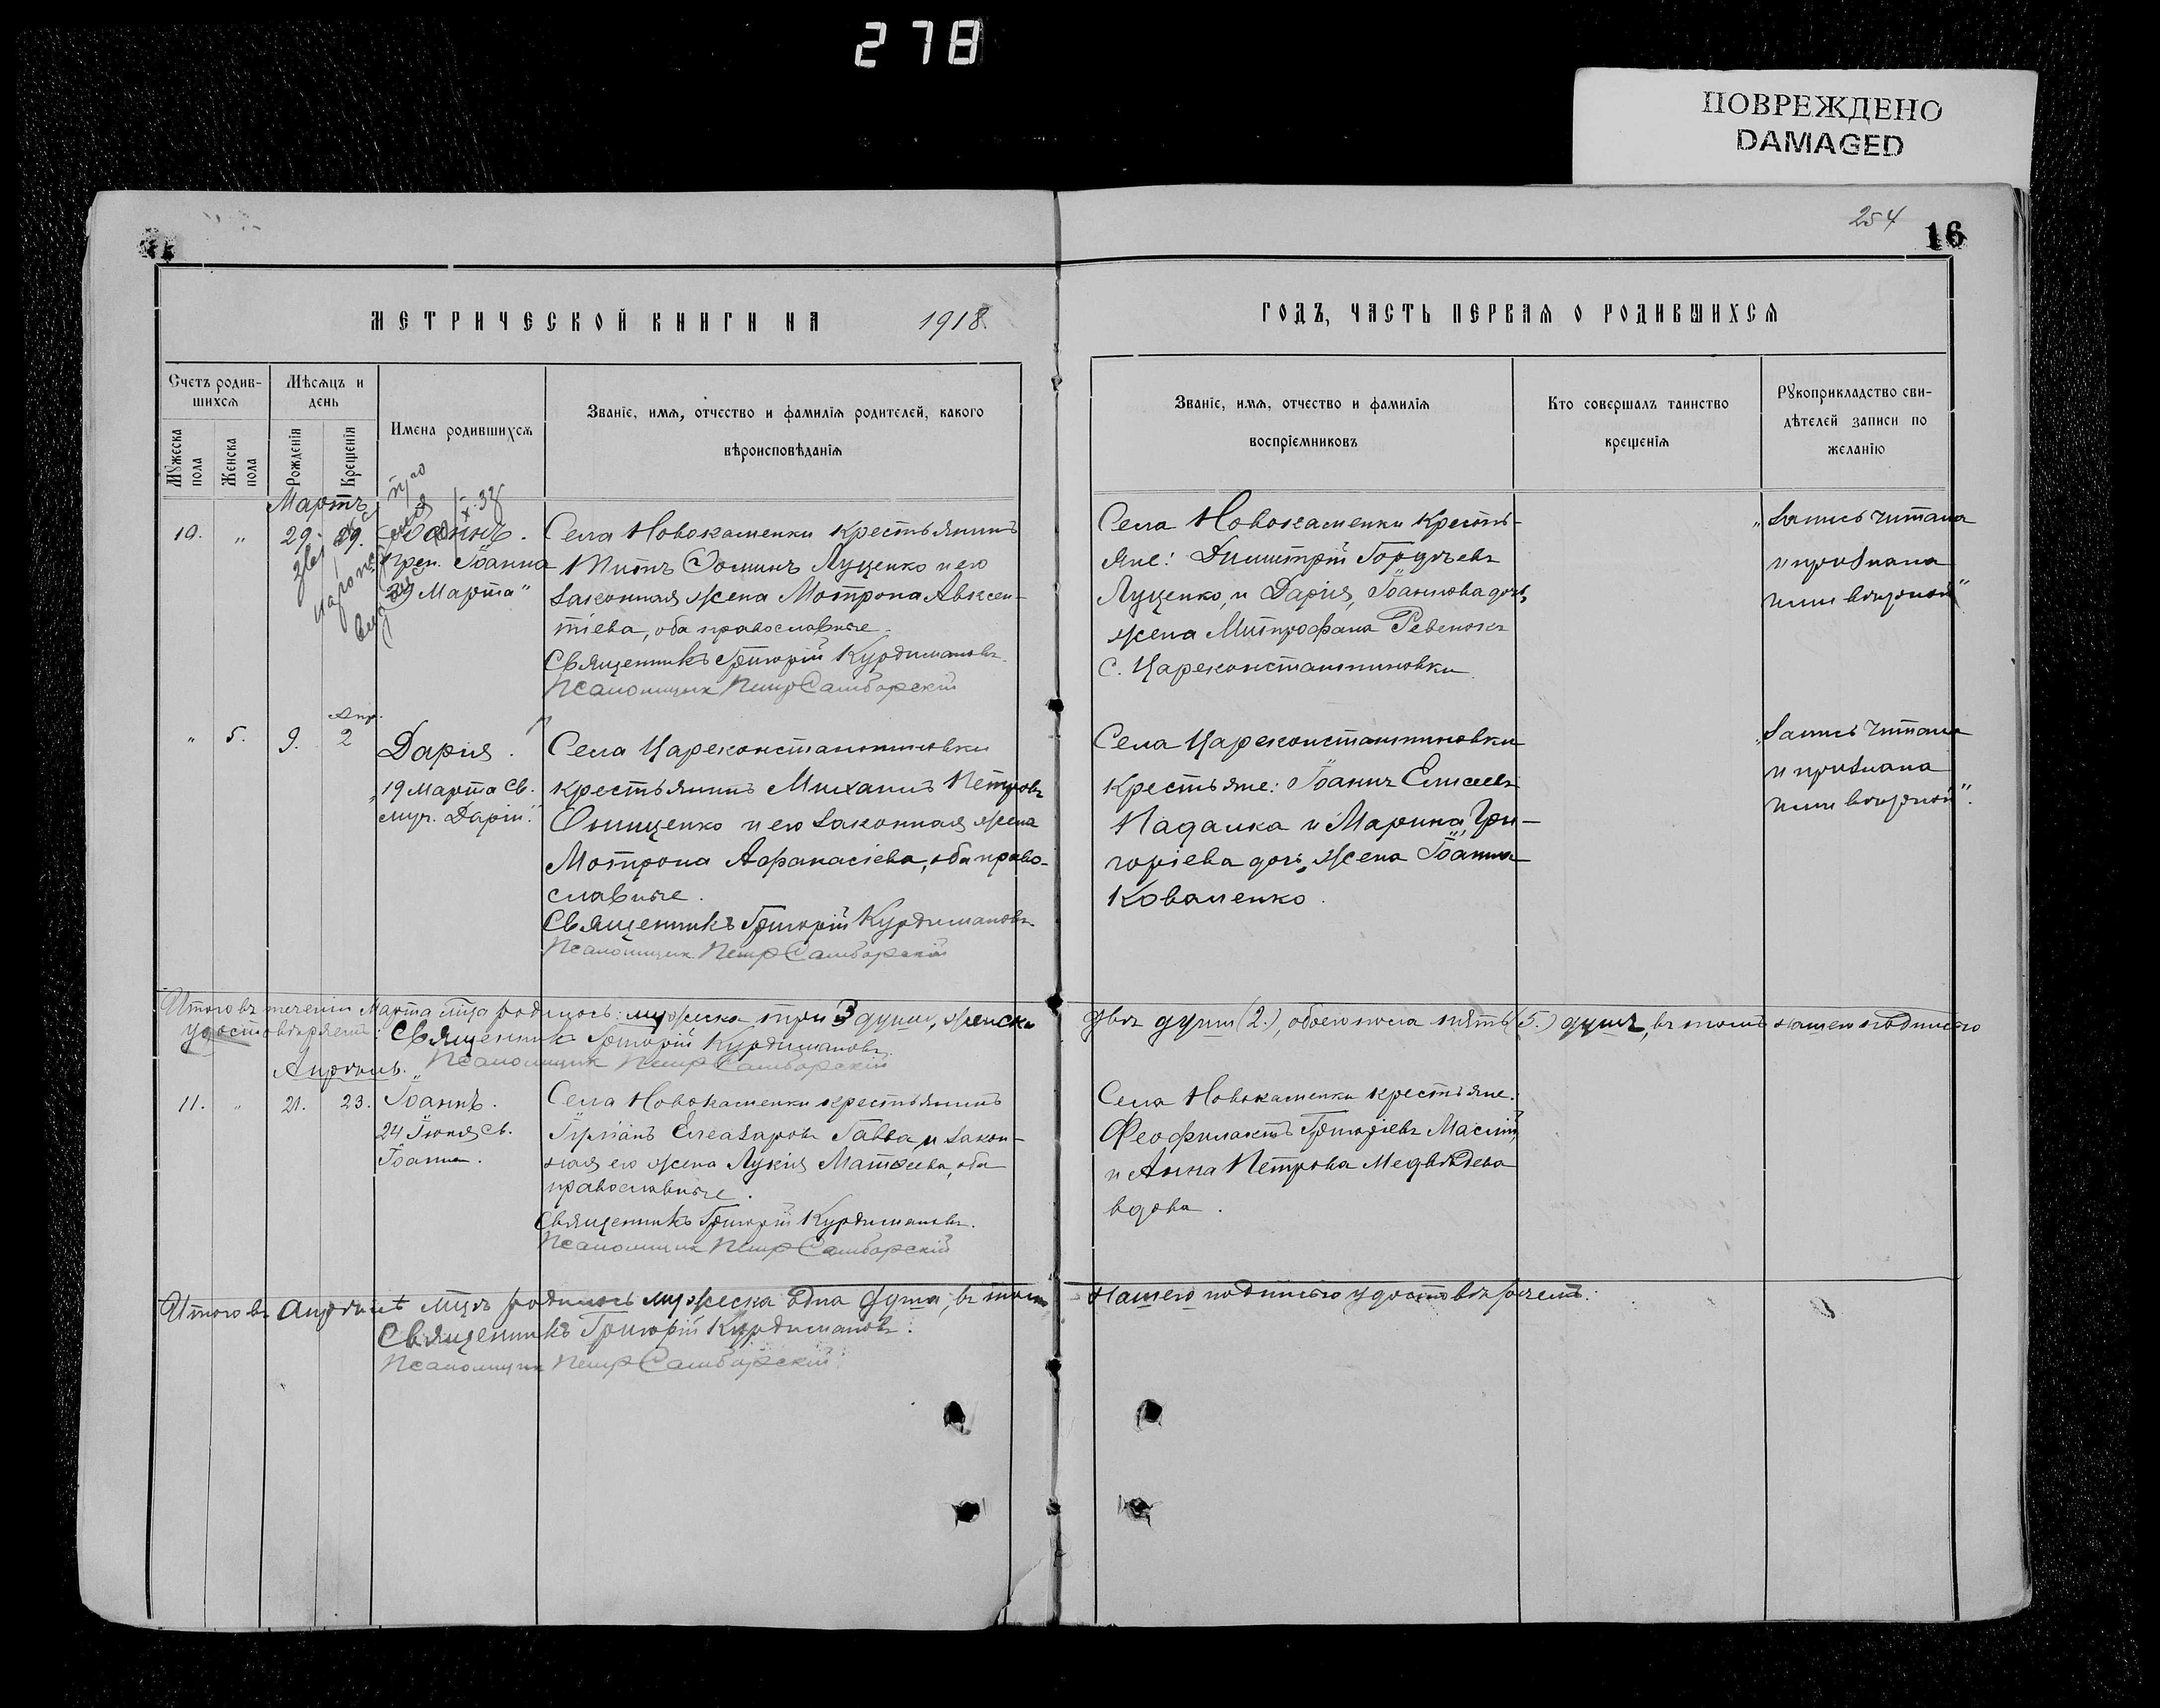 278
ПОВРЕЖДЕНО
DAMAGED
254
16
МЕТРИЧЕСКОЙ КНИГИ НА 1918
ГОДЪ, ЧАСТЬ ПЕРВАЯ О РОДИВШИХСЯ
Счетъ родив-
шихся
Мѣсяцъ и
день
Мужеска
пола
Женска
пола
Рожденія
Крещенія
Имена родившихся
Званіе, имя, отчество и фамилія родителей, какого
вѣроисповѣданія
Званіе, имя, отчество и фамилія
воспріемниковъ
Кто совершалъ таинство
крещенія
Рукоприкладство сви-
дѣтелей записи по
желанію
Мартъ
10. " 29. 29. Іоаннъ.
Преп. Іоанна
29 Марта"
Села Новокаменки крестьянинъ
Титъ Ѳоминъ Луценко и его
законная жена Мотрона Авксен-
тіева, оба православные.
Священникъ Григорій Курдимановъ.
Псаломщик Петр Самборскій
Села Новокаменки кресть-
яне: Димитрій Гордѣевъ
Луценко, и Дарія, Іоаннова дочь,
жена Митрофана Ревенокъ
с. Цареконстантиновки.
"Запись читана
и признана
ими вѣрной"
Апр.
" 5. 9. 2
Дария.
"19 Марта св.
муч. Даріи."
Села Цареконстантиновки
крестьянинъ Михаилъ Петровъ
Онищенко и его законная жена
Мотрона Афанасіева, оба право-
славные.
Священникъ Григорій Курдимановъ
Псаломщик Петр Самборскій
Села Цареконстантиновки
крестьяне: Іоаннъ Елисеевъ
Падалка и Марина, Гри-
горіева дочь, жена Іоанна
Коваленко.
"Запись читана
и признана
ими вѣрной".
Итого въ теченіи Марта м-ца родилось: мужеска три 3 души, женска
двѣ души (2.), обоего пола пять (5.) душъ, въ томъ нашею подписью
удостовѣряемъ: Священникъ Григорій Курдимановъ.
Псаломщик Петр Самборскій
Апрѣль.
11. " 21. 23. Іоаннъ.
24 Іюня св.
Іоанна.
Села Новокаменки крестьянинъ
Елеазаровъ Гавва и закон-
ная его жена Лукія Матѳеева, оба
православные.
Священникъ Григорій Курдимановъ.
Псаломщик Петр Самборскій
Села Новокаменки крестьяне.
Феофилактъ Григоріевъ Маслій
и Анна Петрова Медвѣдева
вдова.
Итого въ Апрѣлѣ м-цѣ родилось мужеска одна душа, въ томъ
нашею подписью удостовѣряемъ.
Священникъ Григорій Курдимановъ.
Псаломщик Петр Самборскій